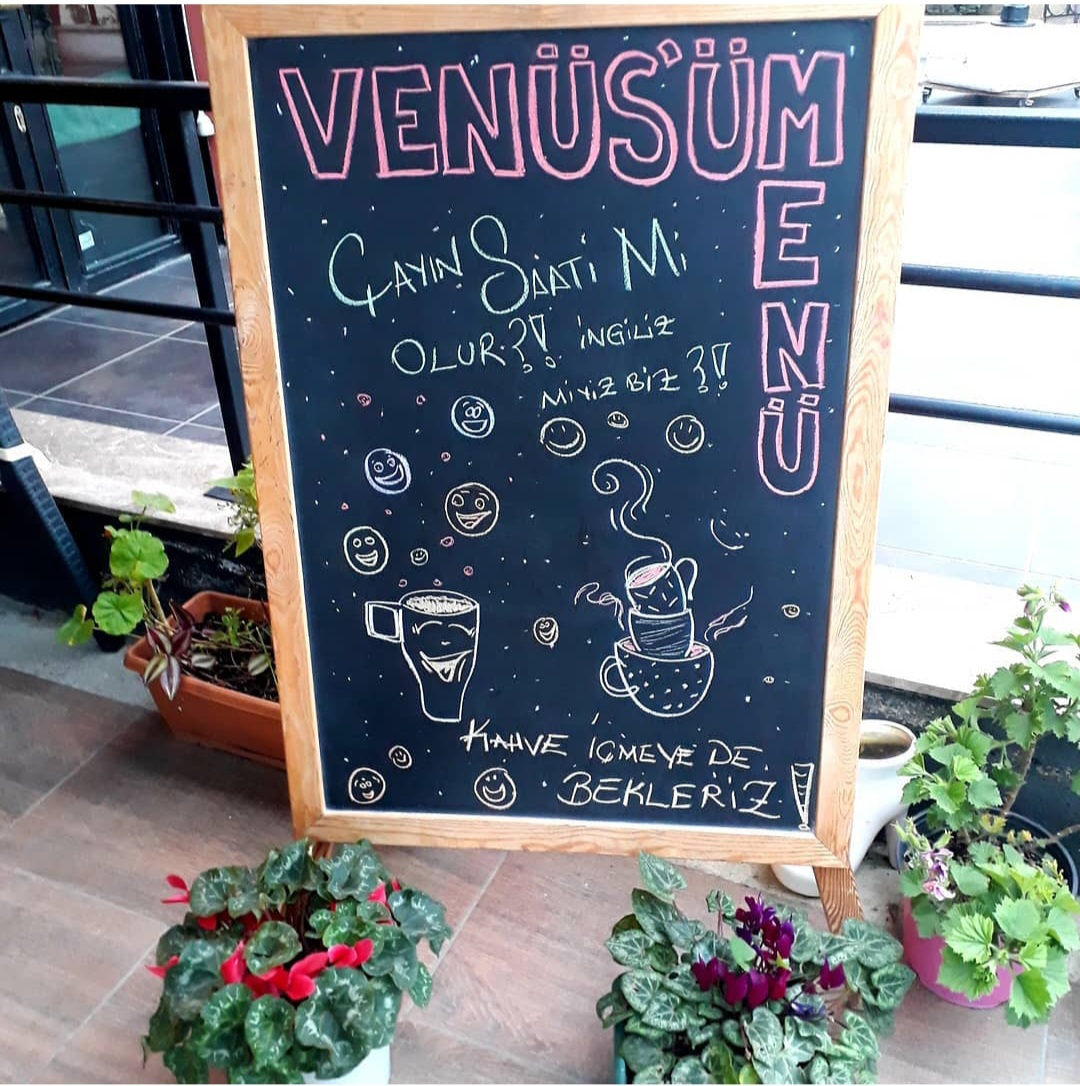 VENÜS'ÜM
MENÜ
ÇAYIN SAATİ Mİ
OLUR?! İNGİLİZ
MİYİZ BİZ?!
KAHVE İÇMEYE DE
BEKLERİZ!